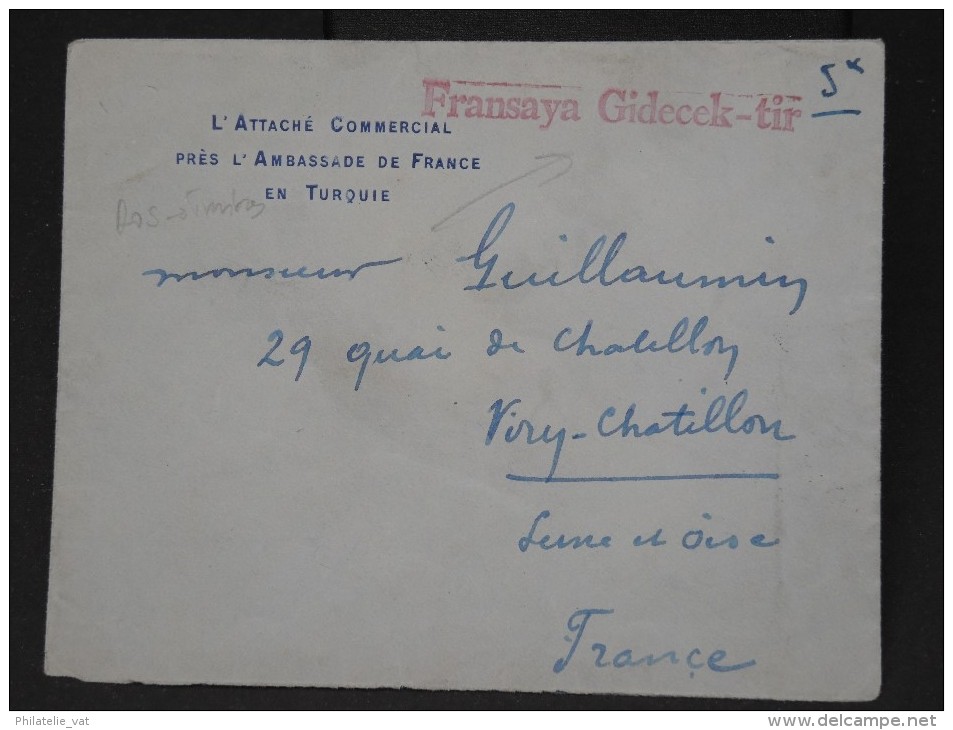 Fransaya Gidecek-tir
L'ATTACHÉ COMMERCIAL
PRÈS L'AMBASSADE DE FRANCE
EN TURQUIE
monsieur Guillaumin
29 quai de Chatillon
Viry-Chatillon
Seine et Oise
France
Philatelie_vat
www.delcampe.net